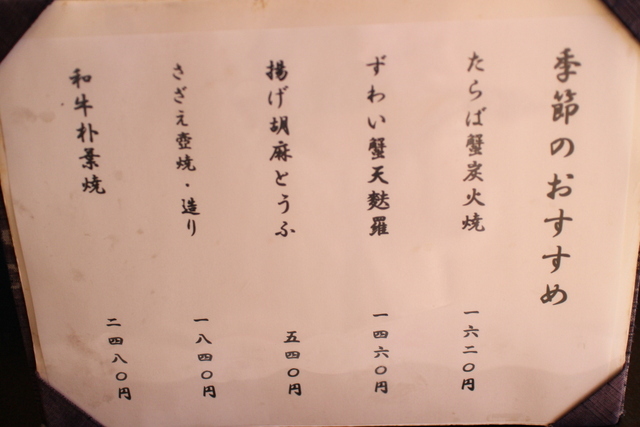 季節のおすすめ
たらば蟹炭火焼 一六二〇円
ずわい蟹天麩羅 一四六〇円
揚げ胡麻とうふ 五四〇円
さざえ壺焼・造り 一八四〇円
和牛朴葉焼 二四八〇円